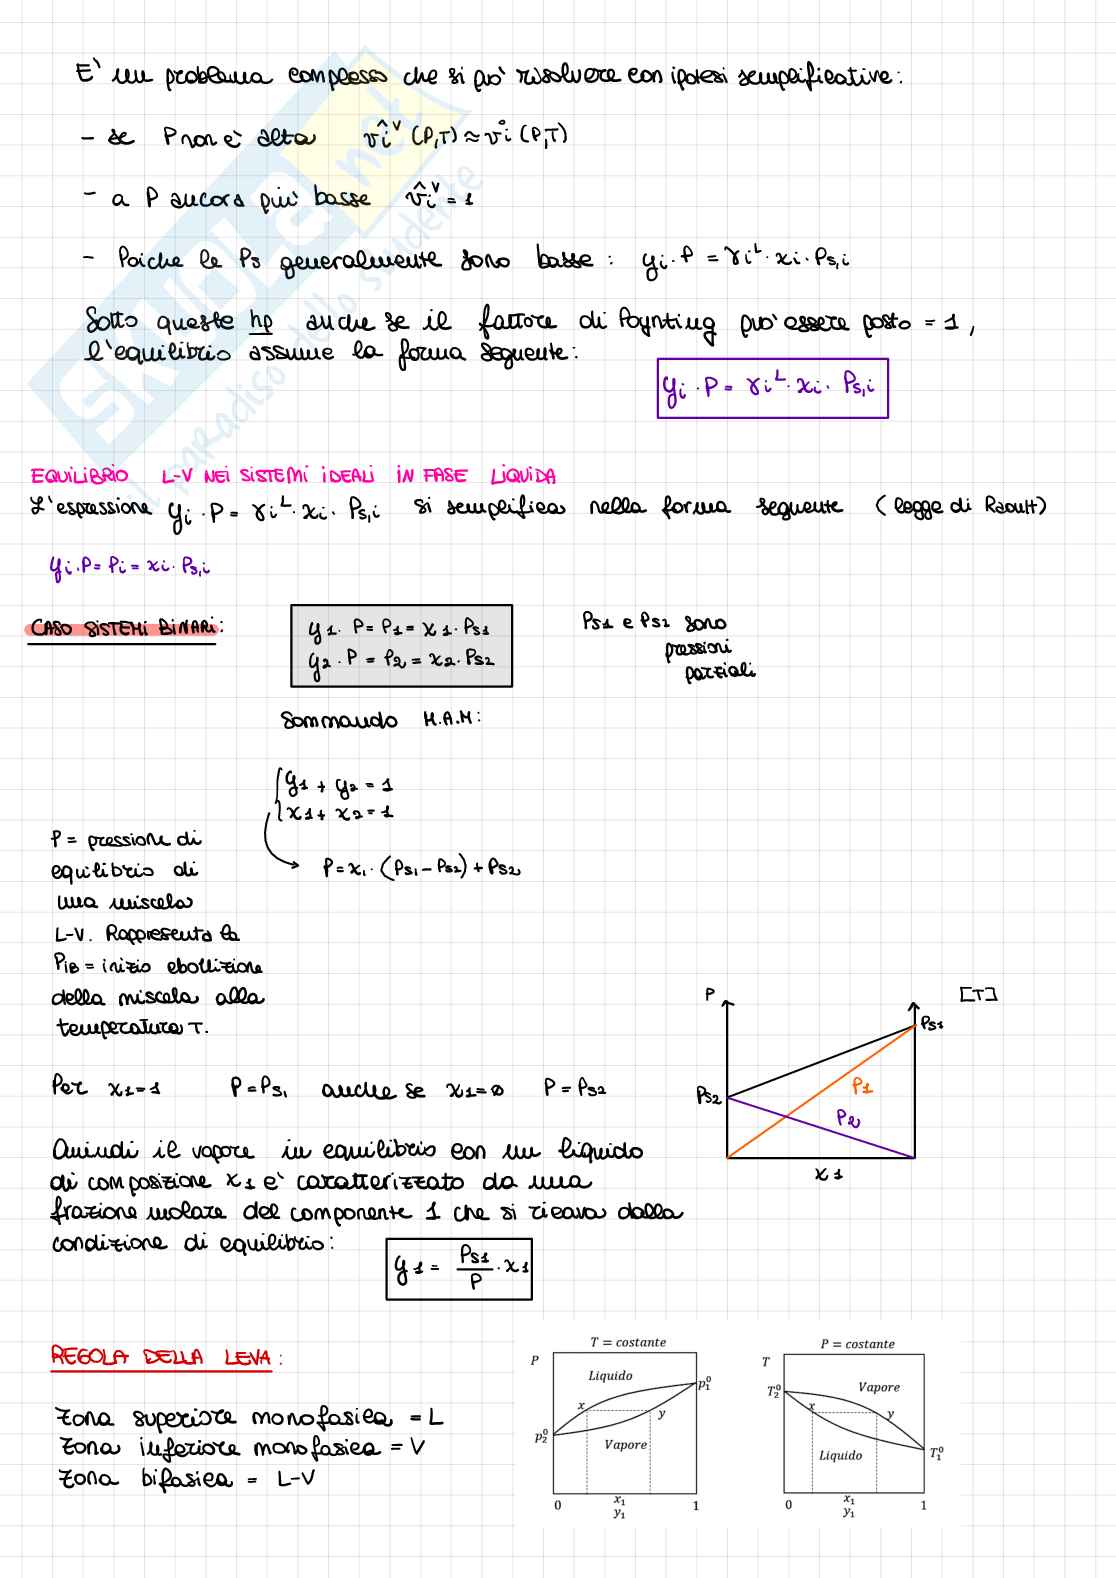 E' un problema complesso che si può risolvere con ipotesi semplificative:
- se P non è alta v̂iᵛ (P,T) ≈ v°i (P,T)
- a P ancora più basse v̂iᵛ = 1
- Poiche le Ps generalmente sono basse: yi · P = γiᴸ · xi · Ps,i
Sotto queste hp anche se il fattore di Poynting può essere posto = 1,
l'equilibrio assume la forma seguente:
yi · P = γiᴸ · xi · Ps,i
EQUILIBRIO L-V NEI SISTEMI IDEALI IN FASE LIQUIDA
L'espressione yi · P = γiᴸ · xi · Ps,i si semplifica nella forma seguente (legge di Raoult)
yi · P = Pi = xi · Ps,i
CASO SISTEMI BINARI:
y1 · P = P1 = x1 · Ps1
y2 · P = P2 = x2 · Ps2
Ps1 e Ps2 sono
pressioni
parziali
Sommando M.A.M:
y1 + y2 = 1
x1 + x2 = 1
P = x1 · (Ps1 - Ps2) + Ps2
P = pressione di
equilibrio di
una miscela
L-V. Rappresenta la
PiB = inizio ebollizione
della miscela alla
temperatura T.
P
[T]
Ps1
Ps2
P1
P2
x1
Per x1=1 P=Ps1 anche se x1=0 P=Ps2
Quindi il vapore in equilibrio con un liquido
di composizione x1 e' caratterizzato da una
frazione molare del componente 1 che si ricava dalla
condizione di equilibrio:
y1 = Ps1/P · x1
REGOLA DELLA LEVA:
Zona superiore monofasica = L
Zona inferiore monofasica = V
Zona bifasica = L-V
T = costante
P
Liquido
p₁⁰
x
y
p₂⁰
Vapore
0
x₁
y₁
1
P = costante
T
T₂⁰
Vapore
x
y
Liquido
T₁⁰
0
x₁
y₁
1
SKUOLA.net
il paradiso dello studente